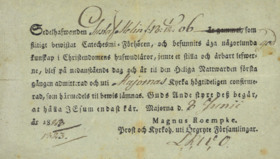 Sedelhafwanden Gustaf
år gammel, som
flitigt bewistat Catechesi-Förhören, och befunnits äga någorlunda
kunskap i Christendomens hufwudläror, jemte et stilla och ärbart lefwer-
ne, blef på nedanstående dag och år til den Heliga Nattwarden första
gången admitterad och uti Majornas Kyrka högtideligen confirme-
rad, som härmedels til bewis lämnas. Guds Ande styre des begär,
at hålla JEsum endast kär. Majorna d. 8 Junii
år 18
Magnus Roempke.
Prost och Kyrkoh. uti Örgryte Församlingar.